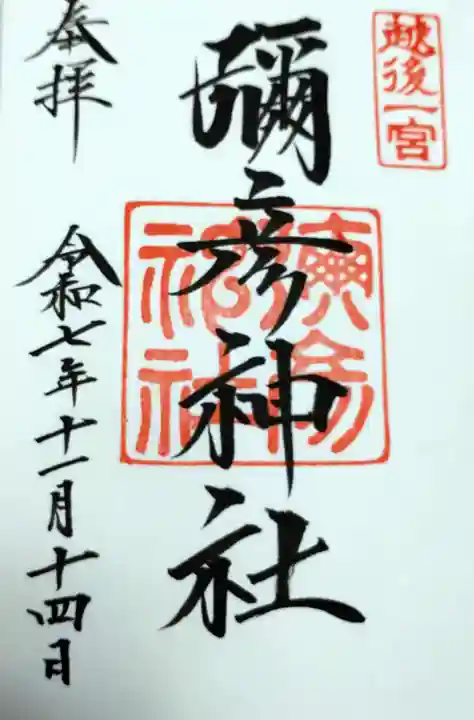 越後一宮
彌彦神社
奉拝
令和七年十一月十四日